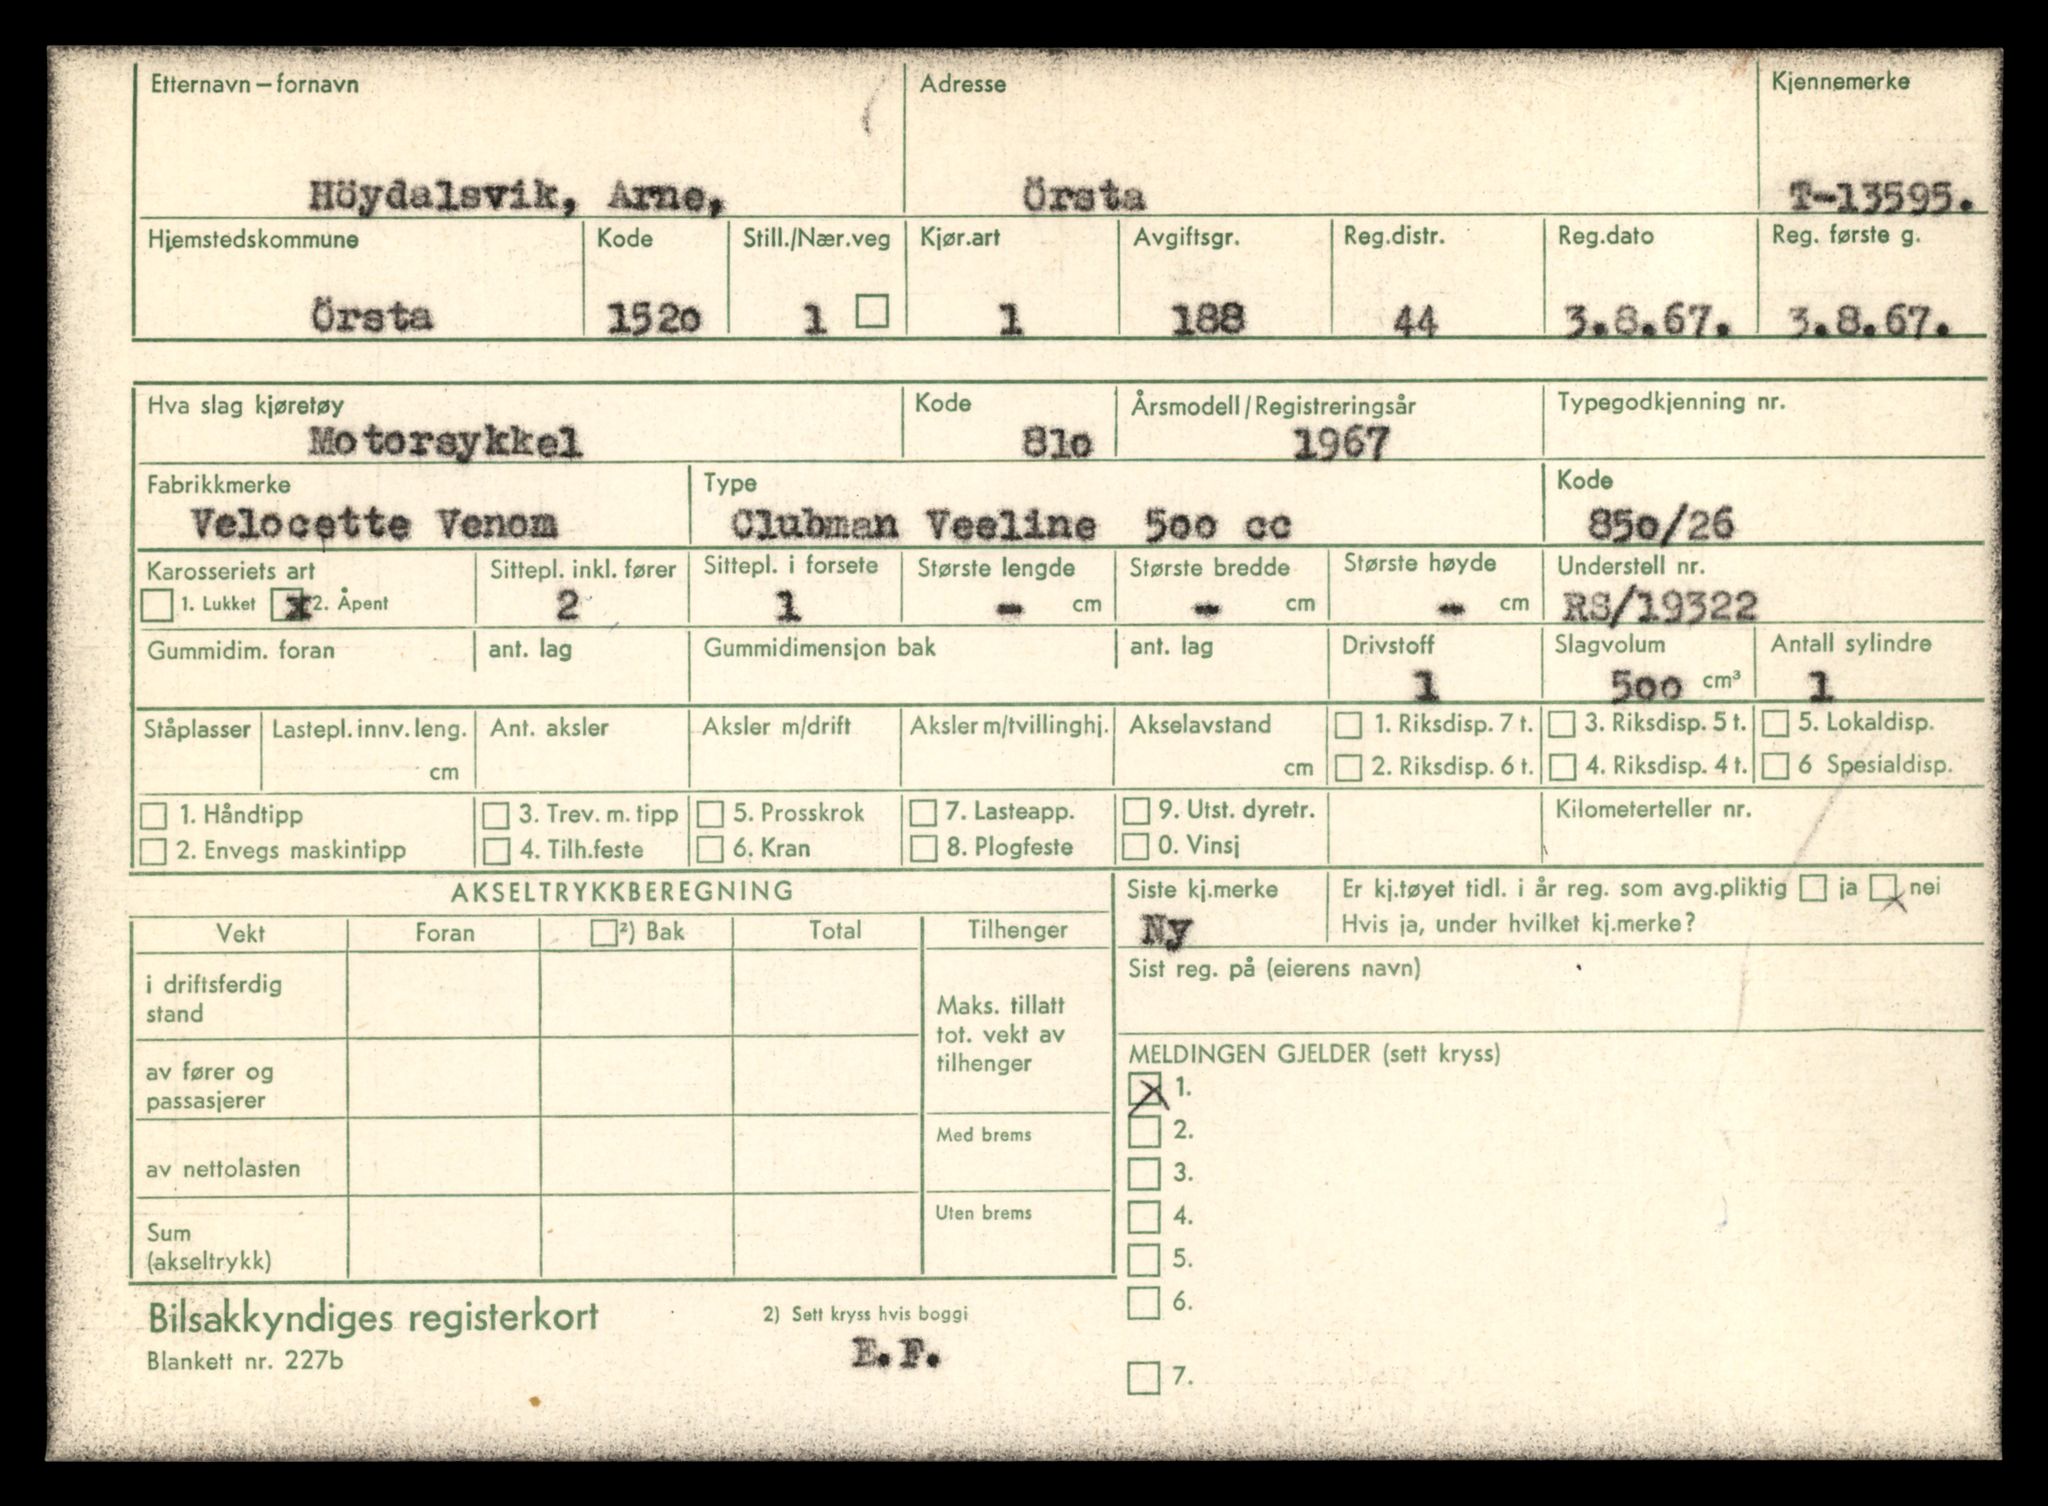 Etternavn – fornavn Adresse Kjennemerke
Höydalsvik, Arne, Örsta T-13595.
Hjemstedskommune Kode Still./Nær.veg Kjør.art Avgiftsgr. Reg.distr. Reg.dato Reg. første g.
Örsta 1520 1 1 188 44 3.8.67. 3.8.67.
Hva slag kjøretøy Kode Årsmodell/Registreringsår Typegodkjenning nr.
Motorsykkel 810 1967
Fabrikkmerke Type Kode
Velocette Venom Clubman Veeline 500 cc 850/26
Karosseriets art Sittepl. inkl. fører Sittepl. i forsete Største lengde Største bredde Største høyde Understell nr.
1. Lukket x 2. Åpent 2 1 - cm - cm - cm RS/19322
Gummidim. foran ant. lag Gummidimensjon bak ant. lag Drivstoff Slagvolum Antall sylindre
1 500 cm³ 1
Ståplasser Lastepl. innv. leng. Ant. aksler Aksler m/drift Aksler m/tvillinghj. Akselavstand 1. Riksdisp. 7 t. 3. Riksdisp. 5 t. 5. Lokaldisp.
cm cm 2. Riksdisp. 6 t. 4. Riksdisp. 4 t. 6 Spesialdisp.
1. Håndtipp 3. Trev. m. tipp 5. Prosskrok 7. Lasteapp. 9. Utst. dyretr. Kilometerteller nr.
2. Envegs maskintipp 4. Tilh.feste 6. Kran 8. Plogfeste 0. Vinsj
AKSELTRYKKBEREGNING Siste kj.merke Er kj.tøyet tidl. i år reg. som avg.pliktig ja x nei
Vekt Foran ²) Bak Total Tilhenger Ny Hvis ja, under hvilket kj.merke?
i driftsferdig
stand
Maks. tillatt
tot. vekt av
tilhenger
Sist reg. på (eierens navn)
av fører og
passasjerer
MELDINGEN GJELDER (sett kryss)
x 1.
Med brems 2.
av nettolasten 3.
Uten brems 4.
Sum
(akseltrykk) 5.
6.
Bilsakkyndiges registerkort 2) Sett kryss hvis boggi
Blankett nr. 227b E.F.
7.